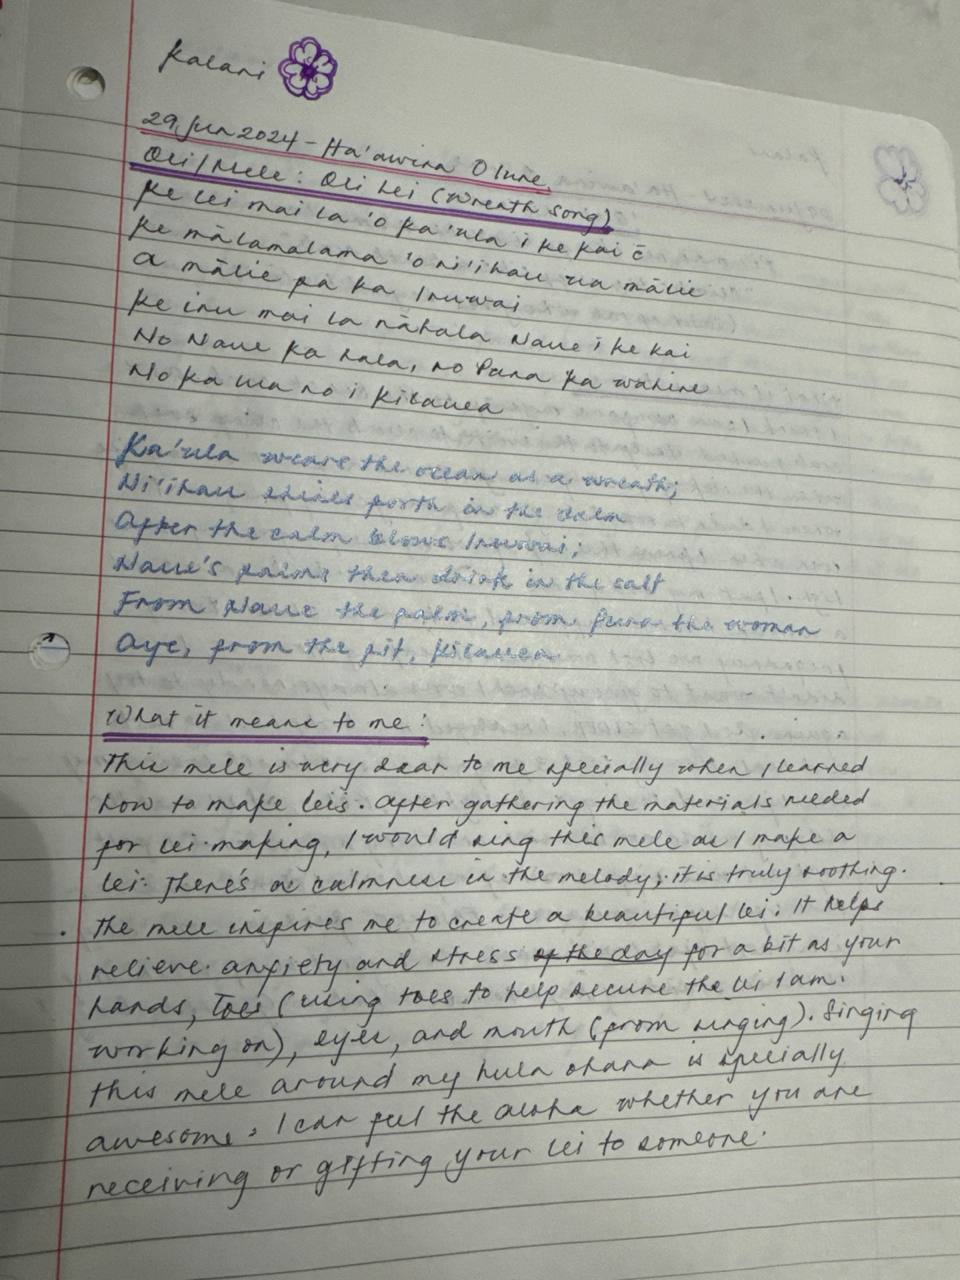 Kalani
29 Jun 2024 - Ha'awina O Iune
Oli/Mele: Oli Lei (Wreath song)
Ke lei mai la 'o Ka'ula i ke kai ē
Ke mālamalama 'o Ni'ihau ua mālie
A mālie pa ka Inuwai
Ke inu mai la nāhala Naue i ke kai
No Naue ka hala, no Puna ka wahine
No ka lua no i Kilauea
Ka'ula wears the ocean as a wreath;
Ni'ihau shines forth in the calm
After the calm blows Inuwai;
Naue's palms then drink in the salt
From Naue the palm, from Puna the woman
Aye, from the pit, Kilauea
What it meant to me:
This mele is very dear to me specially when I learned
how to make leis. After gathering the materials needed
for lei-making, I would sing this mele as I make a
lei. There's a calmness in the melody; it is truly soothing.
The mele inspires me to create a beautiful lei. It helps
relieve anxiety and stress of the day for a bit as your
hands, toes (using toes to help secure the lei I am
working on), eyes, and mouth (from singing). Singing
this mele around my hula ohana is specially
awesome. I can feel the aloha whether you are
receiving or gifting your lei to someone.